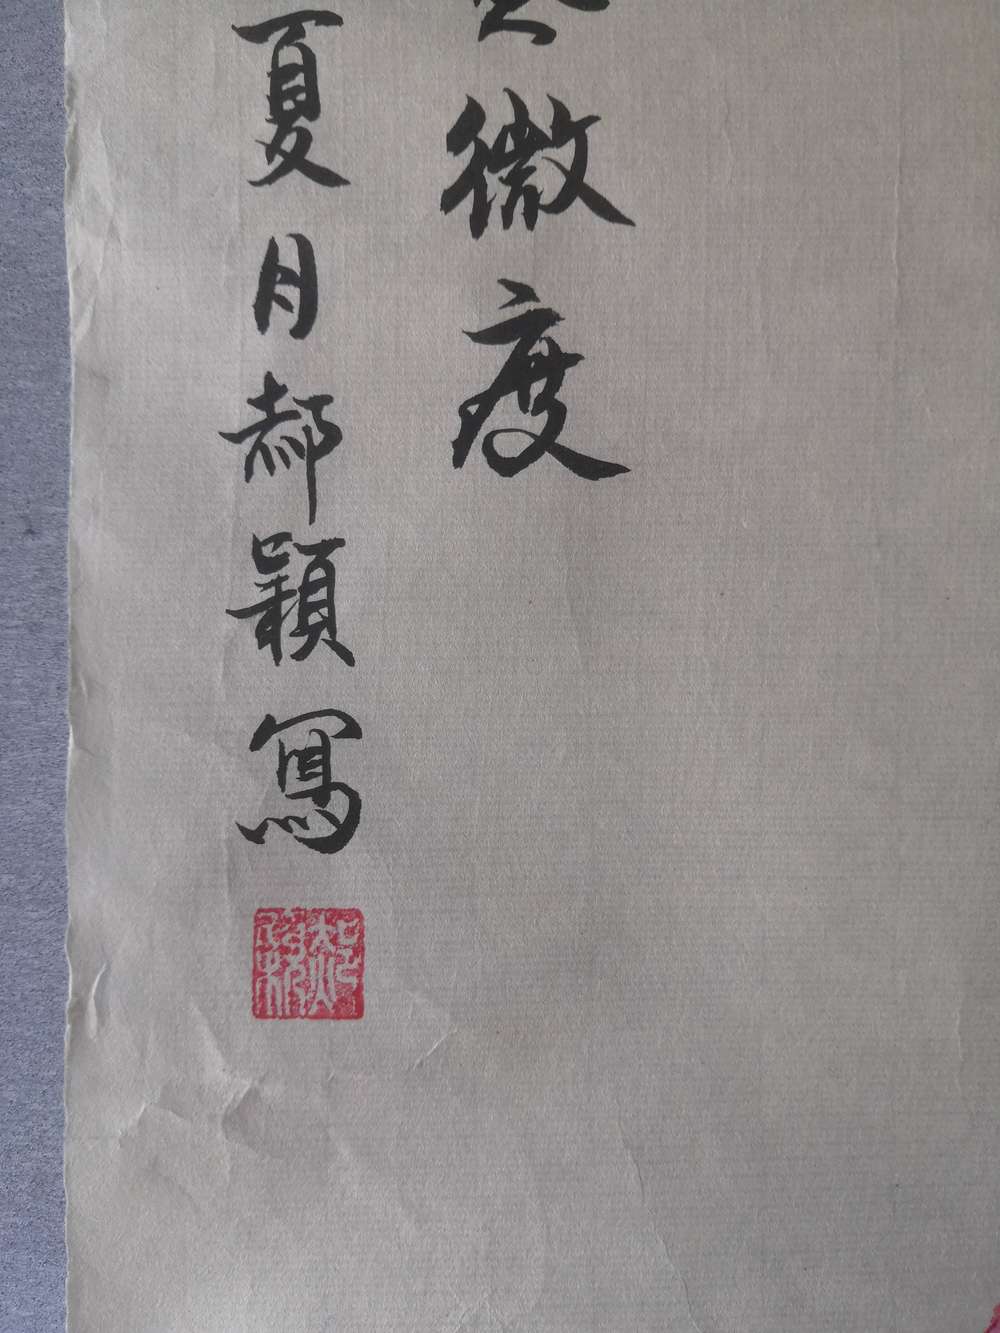 微度
夏月郝穎寫